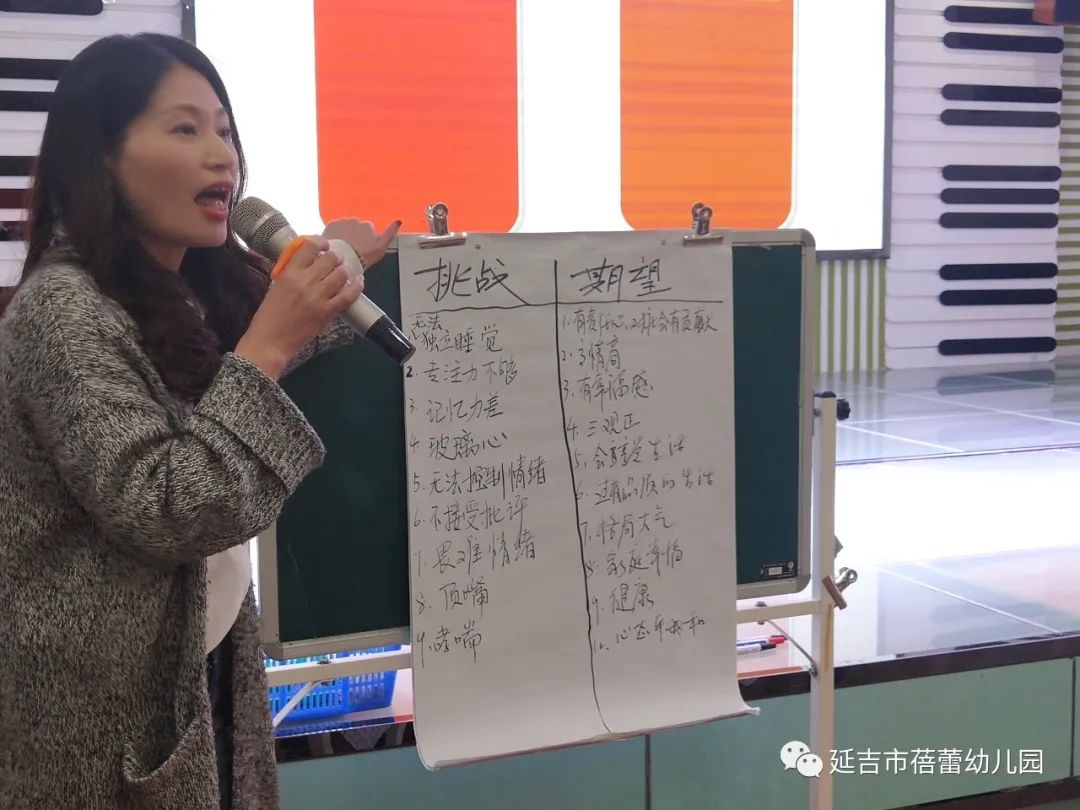 挑战
无法
独立睡觉
2. 专注力不够
3. 记忆力差
4 玻璃心
5. 无法控制情绪
6. 不接受批评
7. 畏难情绪
8. 顶嘴
9. 哮喘
期望
1. 有责任心，对社会有贡献
2. 情商高
3. 有幸福感
4. 三观正
5. 会享受生活
6. 过有品质的生活
7. 格局大气
8. 家庭幸福
9. 健康
10. 心态平和
延吉市蓓蕾幼儿园